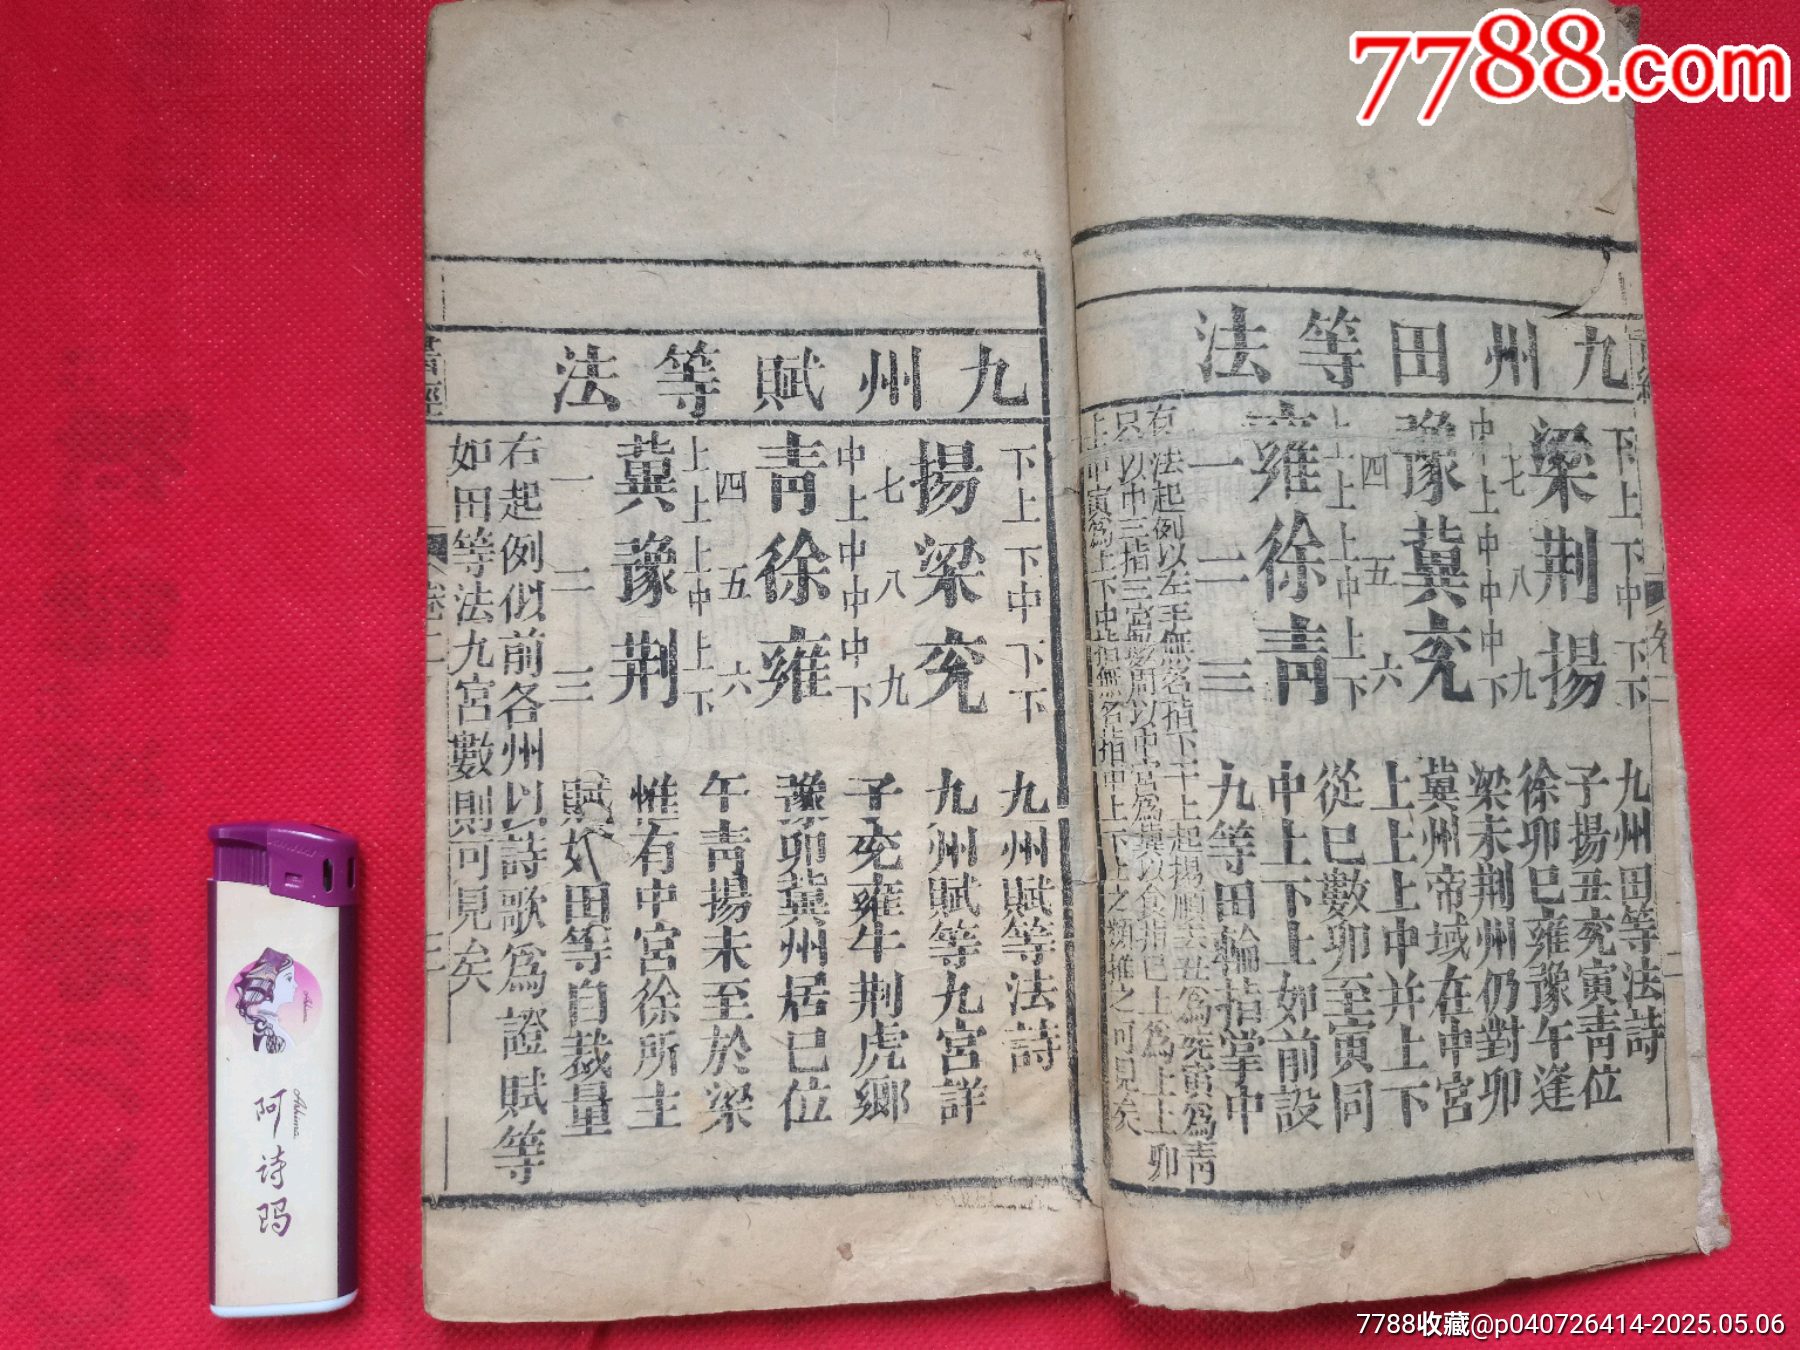 7788.com
九州田等法
下上 下中 下下
七 八 九
梁荆揚
中上 中中 中下
四 五 六
豫冀兖
上上 上中 上下
雍徐靑
一 二 三
九州田等法詩
子揚丑兖寅靑位
徐卯巳雍豫午逢
梁未荆州仍對卯
冀州帝域在中宮
上上上中并上下
從巳數卯至寅同
中上下上如前設
九等田輪指掌中
法起例以左手無名指下 上起揚順去丑為兖寅為靑
只以中三指三宮 周以中宮為冀以食指巳上為上上卯
上中寅為上下中指無名指甲上下上之類推之可見矣
卷二
二
九州賦等法
下上 下中 下下
揚梁兖
七 八 九
中上 中中 中下
靑徐雍
四 五 六
上上 上中 上下
冀豫荆
一 二 三
九州賦等法詩
九州賦等九宮詳
子兖雍牛荆虎鄉
豫卯冀州居巳位
午靑揚未至於梁
惟有中宮徐所主
賦如田等自裁量
右起例似前各州以詩歌為證賦等
如田等法九宮數則可見矣
書經
卷二
阿诗玛
Ashima
7788收藏@p040726414-2025.05.06